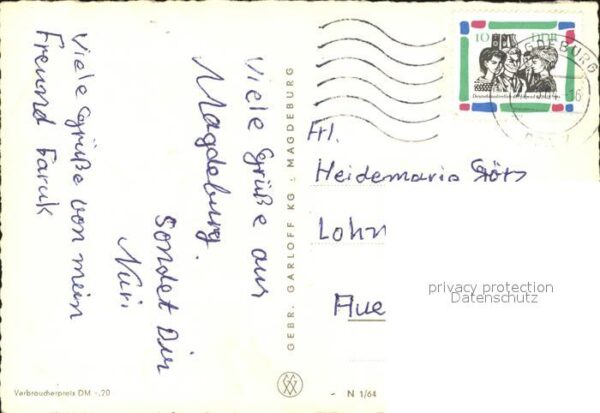 Viele Grüße aus
Magdeburg.
Sondet Dir
Nuri
Viele Grüße von mein
Freund Faruk
GEBR. GARLOFF KG · MAGDEBURG
Frl.
Heidemarie Götz
Lohn
Aue
10 DDR
MAGDEBURG
privacy protection
Datenschutz
Verbraucherpreis DM -,20
N 1/64